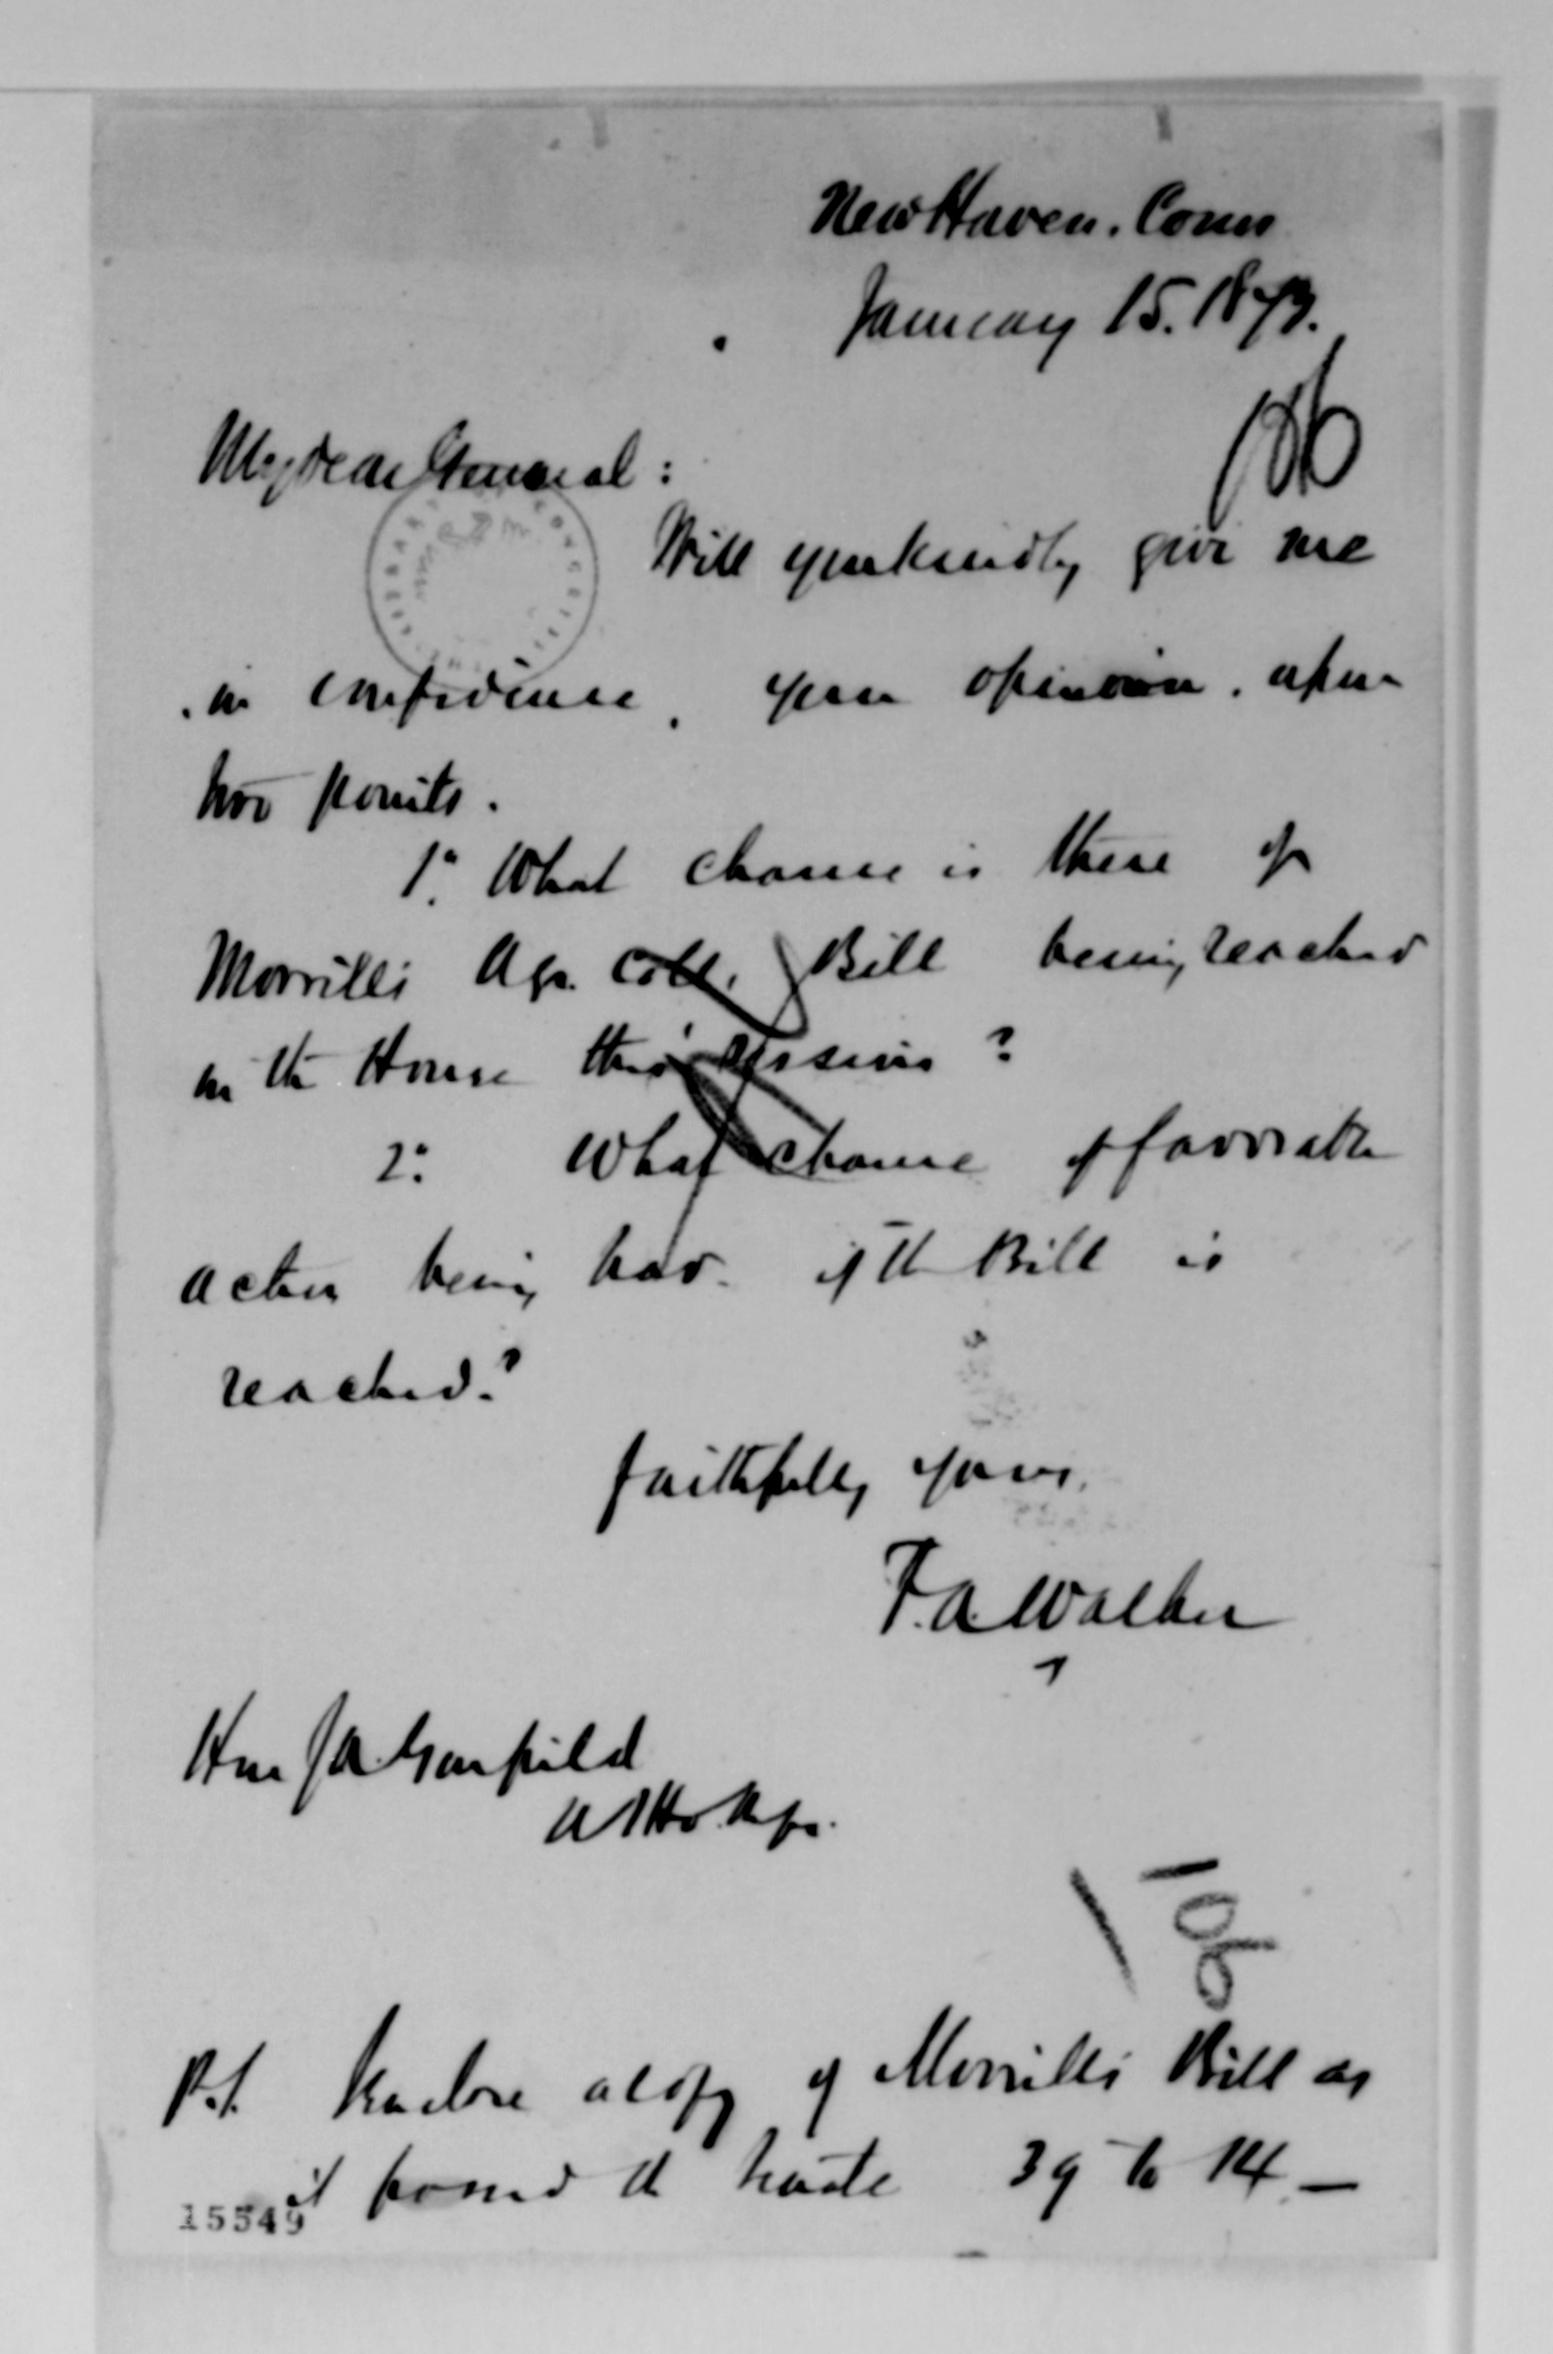 New Haven. Conn
January 15. 1873.
106
My dear General:
Will you kindly give me
in confidence, your opinion, upon
two points.
1º. What chance is there of
Morrill's Agr. Coll. Bill being reached
in the House this session?
2º. What chance of favorable
action being had. if the Bill is
reached?
Faithfully yours,
F. A. Walker
Hon J A Garfield
Ho. Rep.
106
P.S. Enclose a copy of Morrill's Bill as
it passed the Senate 39 to 14 —
15549